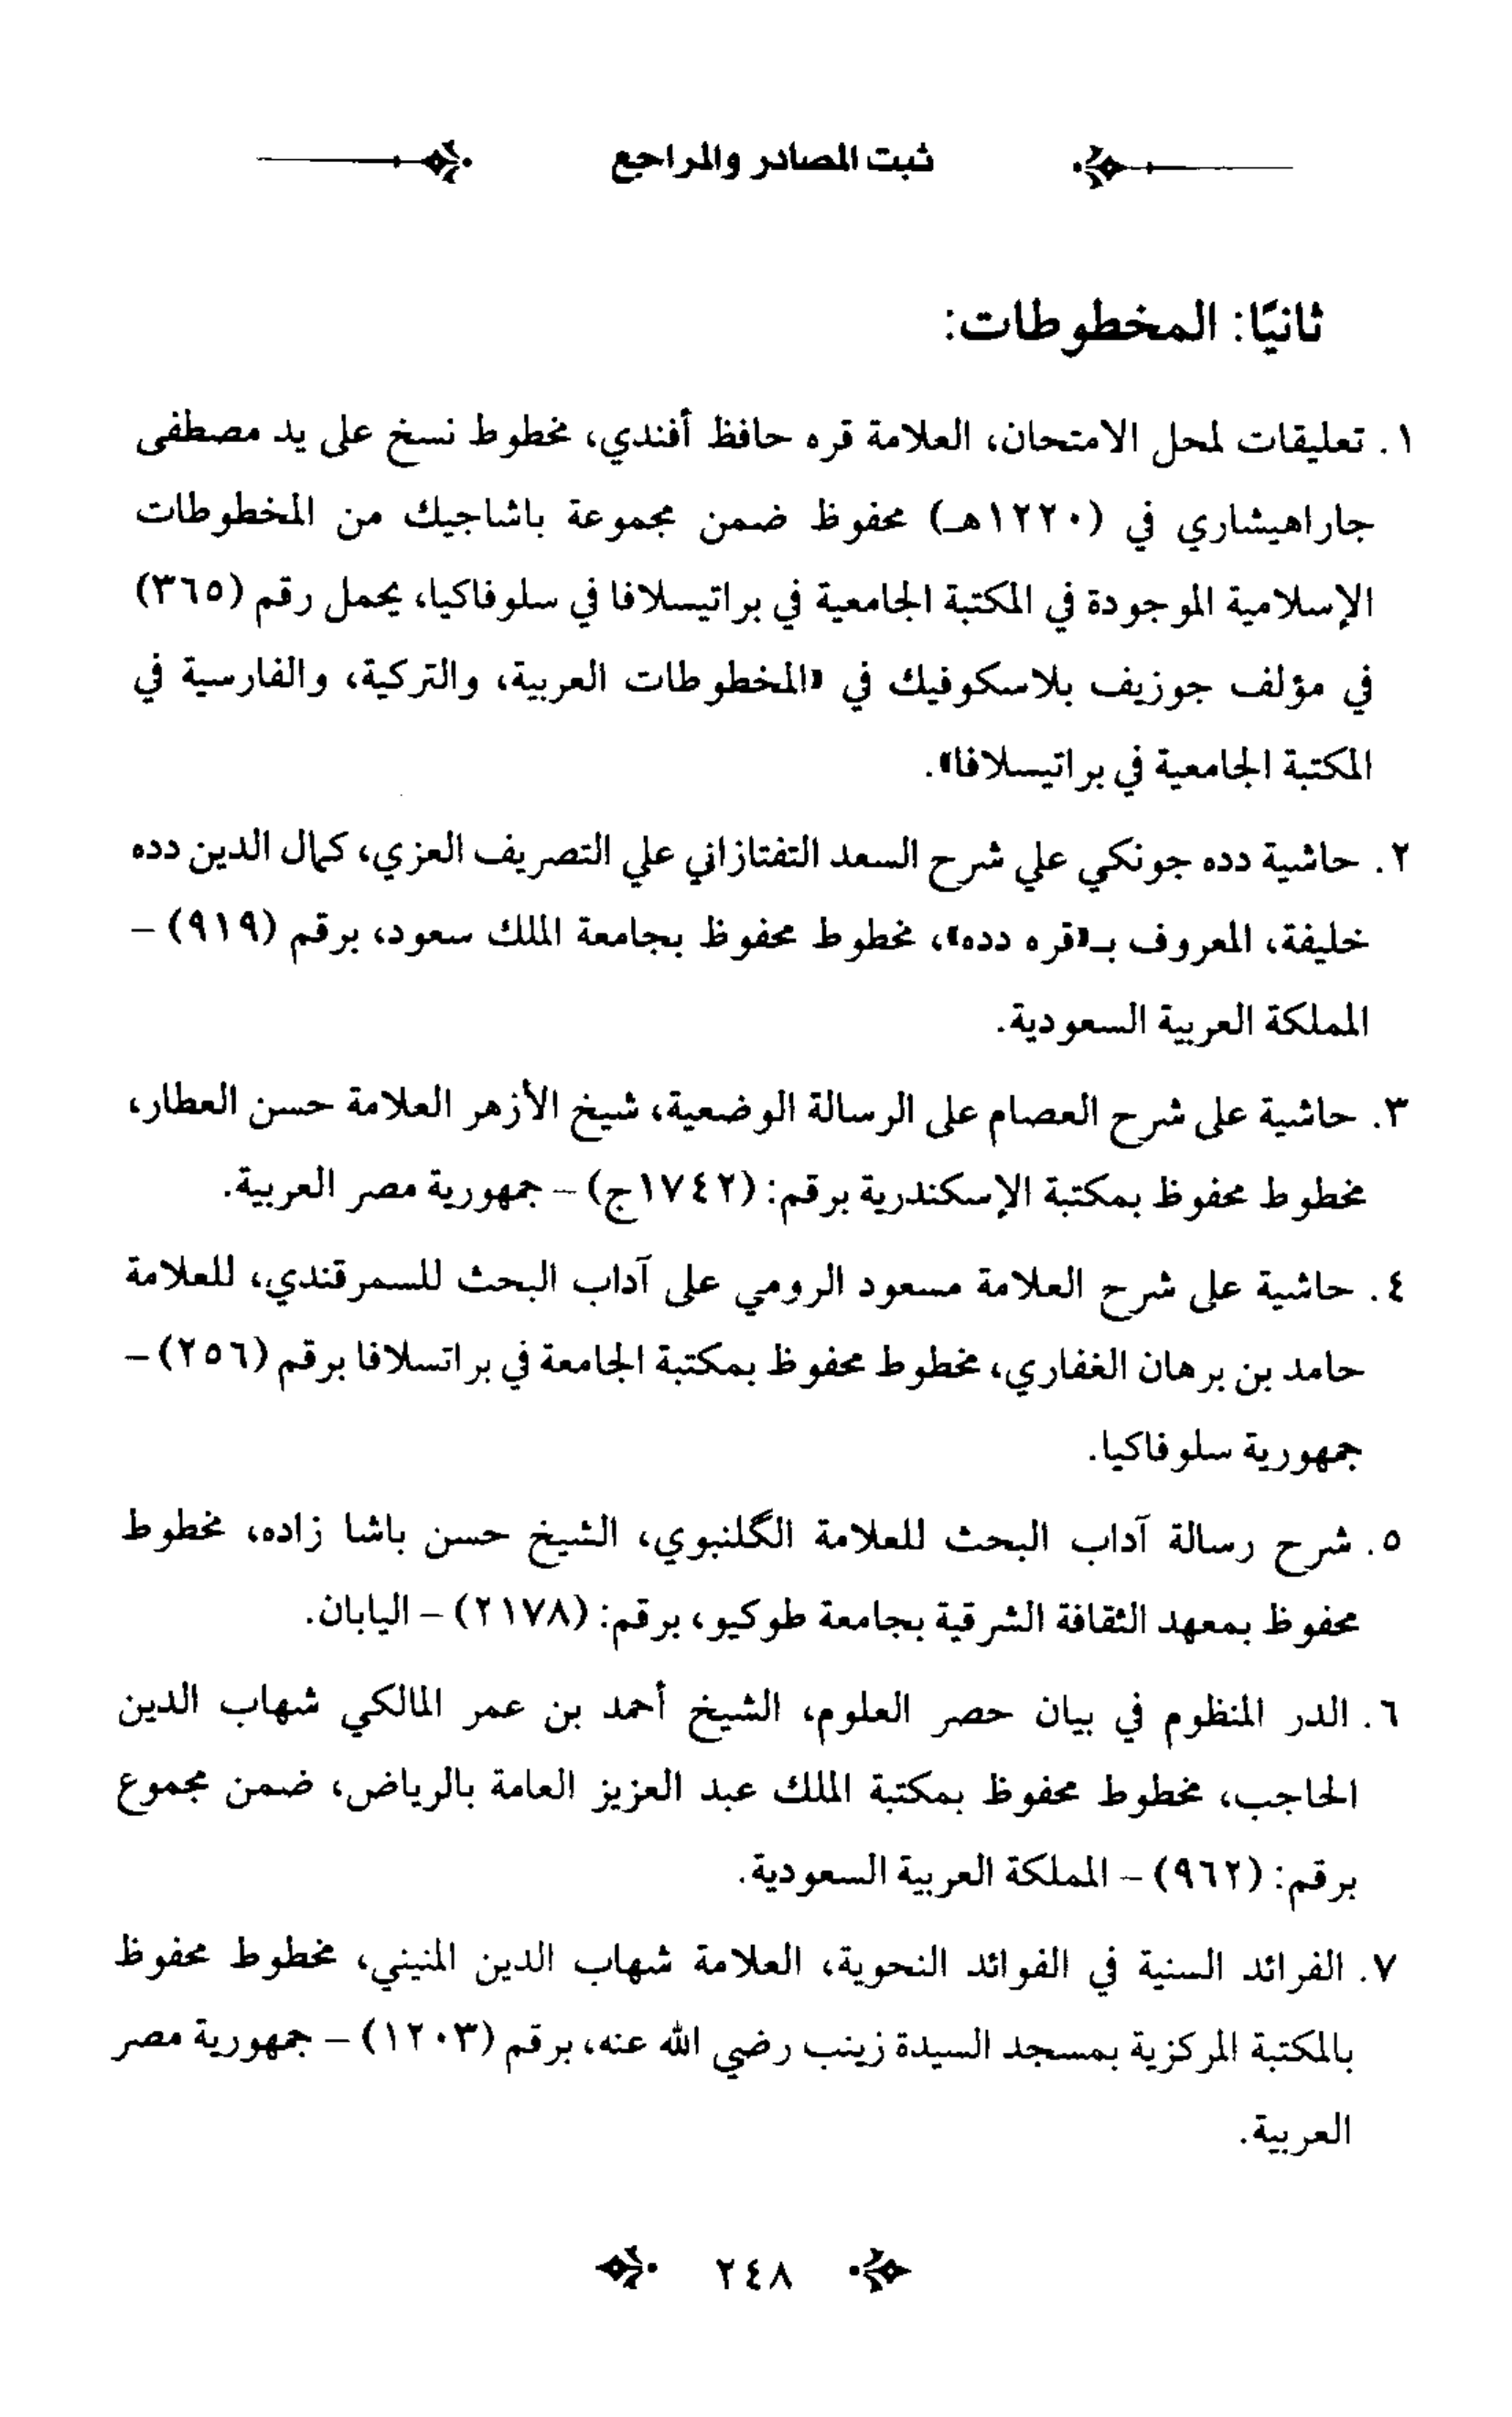 ثبت المصادر والمراجع
ثانيًا: المخطوطات:
١. تعليقات لمحل الامتحان، العلامة قره حافظ أفندي، مخطوط نسخ على يد مصطفى
جاراهيشاري في (١٢٢٠هـ) محفوظ ضمن مجموعة باشاجيك من المخطوطات
الإسلامية الموجودة في المكتبة الجامعية في براتيسلافا في سلوفاكيا، يحمل رقم (٣٦٥)
في مؤلف جوزيف بلاسكوفيك في «المخطوطات العربية، والتركية، والفارسية في
المكتبة الجامعية في براتيسلافا».
٢. حاشية دده جونكي علي شرح السعد التفتازاني علي التصريف العزي، كمال الدين دده
خليفة، المعروف بـ«قره دده»، مخطوط محفوظ بجامعة الملك سعود، برقم (٩١٩) –
المملكة العربية السعودية.
٣. حاشية على شرح العصام على الرسالة الوضعية، شيخ الأزهر العلامة حسن العطار،
مخطوط محفوظ بمكتبة الإسكندرية برقم: (١٧٤٢ج) – جمهورية مصر العربية.
٤. حاشية على شرح العلامة مسعود الرومي على آداب البحث للسمرقندي، للعلامة
حامد بن برهان الغفاري، مخطوط محفوظ بمكتبة الجامعة في براتسلافا برقم (٢٥٦) –
جمهورية سلوفاكيا.
٥. شرح رسالة آداب البحث للعلامة الگلنبوي، الشيخ حسن باشا زاده، مخطوط
محفوظ بمعهد الثقافة الشرقية بجامعة طوكيو، برقم: (٢١٧٨) – اليابان.
٦. الدر المنظوم في بيان حصر العلوم، الشيخ أحمد بن عمر المالكي شهاب الدين
الحاجب، مخطوط محفوظ بمكتبة الملك عبد العزيز العامة بالرياض، ضمن مجموع
برقم: (٩٦٢) – المملكة العربية السعودية.
٧. الفرائد السنية في الفوائد النحوية، العلامة شهاب الدين المنيني، مخطوط محفوظ
بالمكتبة المركزية بمسجد السيدة زينب رضي الله عنه، برقم (١٢٠٣) – جمهورية مصر
العربية.
٢٤٨